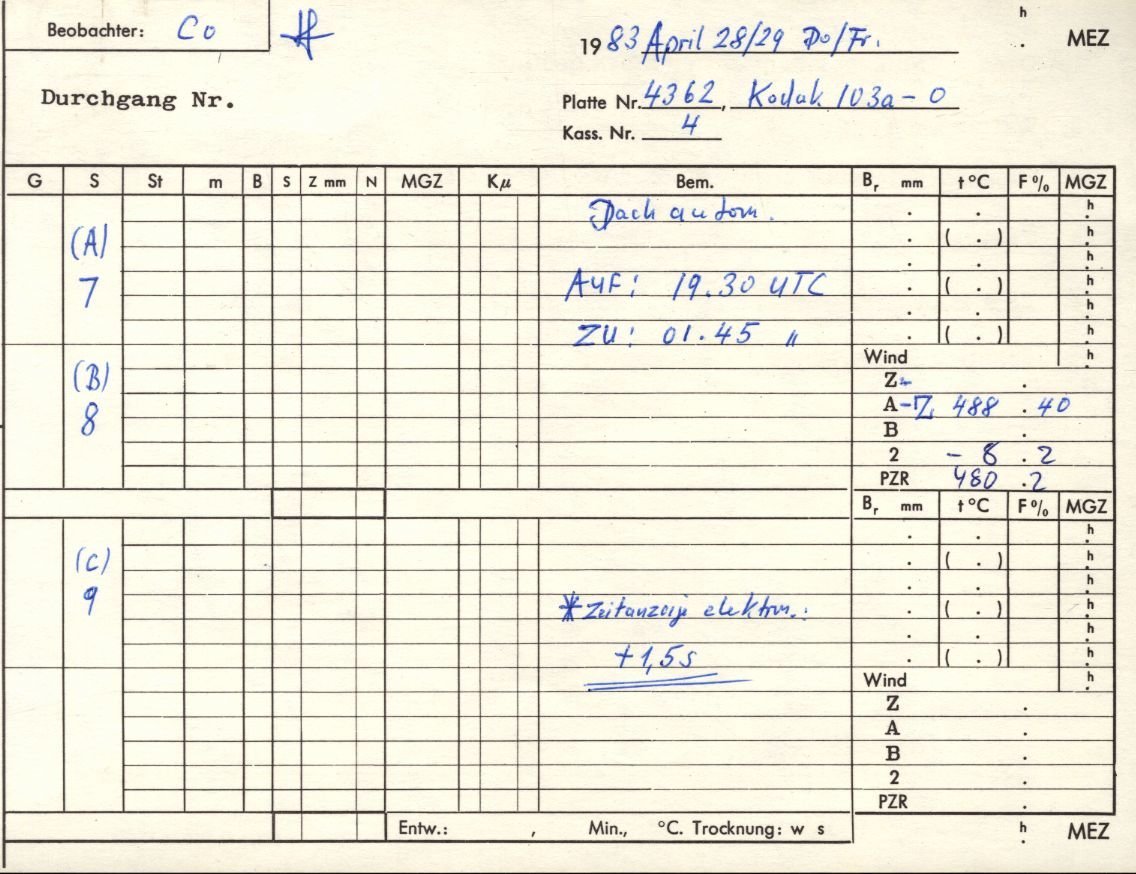 Beobachter: Co
h
1983 April 28/29 Do/Fr. . MEZ
Durchgang Nr.
Platte Nr. 4362, Kodak 103a-O
Kass. Nr. 4
G S St m B S Z mm N MGZ Kμ Bem. Br mm t°C F% MGZ
Dach autom. . . h
(A) . ( . ) h
. . h
7 AUF: 19.30 UTC . ( . ) h
. . h
ZU: 01.45 " . ( . ) h
Wind h
(B) Z- .
8 A-Z 488 . 40
B .
2 - 8 . 2
PZR 480 . 2
Br mm t°C F% MGZ
. . h
(C) . ( . ) h
. . h
9 * Zeitanzeige elektron.: . ( . ) h
. . h
+1,5s . ( . ) h
Wind h
Z .
A .
B .
2 .
PZR .
Entw.: , Min., °C. Trocknung: w s h . MEZ